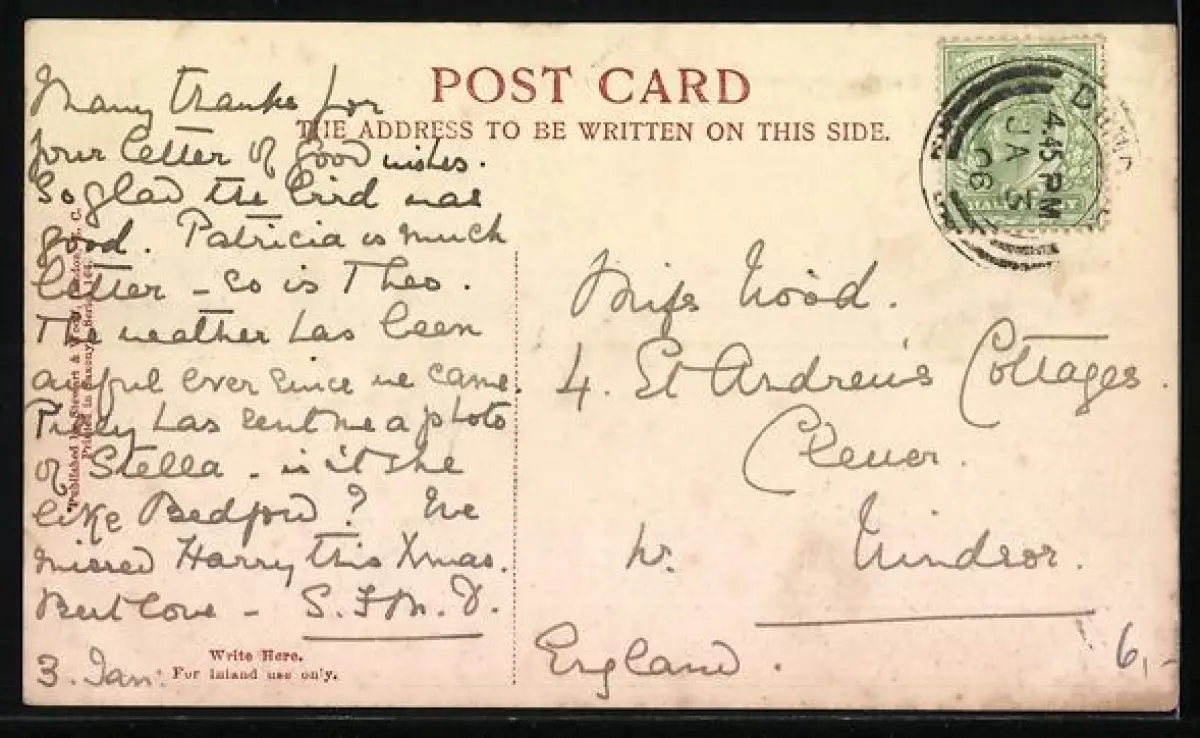 POST CARD
THE ADDRESS TO BE WRITTEN ON THIS SIDE.
Many thanks for
your letter of good wishes.
So glad the bird was
good. Patricia is much
better - so is Theo.
The weather has been
awful ever since we came.
has sent me a photo
of Stella - is it she
like Bedford? We
missed Harry this Xmas.
Best love - S.F.M.D.
3. Jan:
Write Here.
For inland use only.
Published by Stewart & Woolf, London, E. C.
Printed in Saxony. Series 164.
4.45 PM
JA 3
06
HALFPENNY
Miss Wood.
4. St Andrew's Cottages.
Clewer.
Nr. Windsor.
England.
6,-